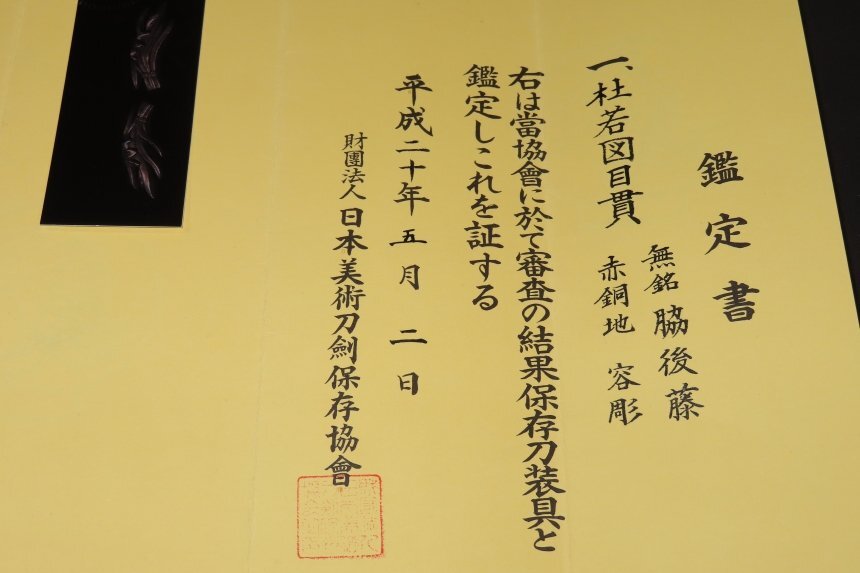 鑑定書
一、杜若図目貫
無銘 脇後藤
赤銅地 容彫
右は當協會に於て審査の結果保存刀装具と
鑑定しこれを証する
平成二十年五月二日
財團法人日本美術刀劍保存協會